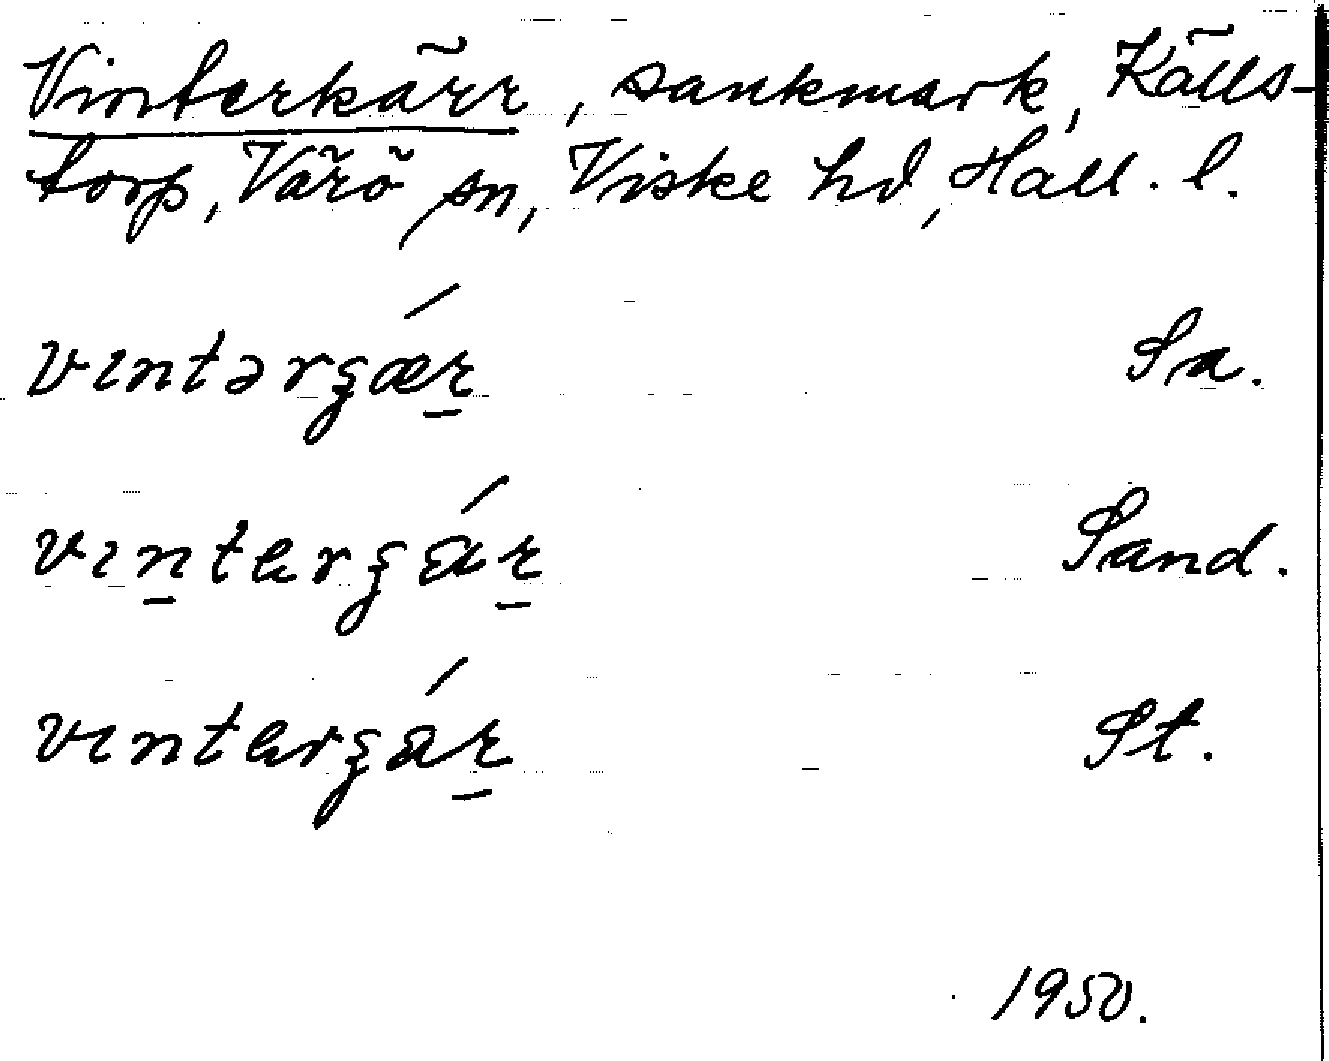 Vinterkärr, sankmark, Källs-
torp, Värö sn, Viske hd, Hall. l.
vıntərʒǽr̲ Sa.
vın̲tɐrʒár̲ Sand.
vıntɐrʒár̲ St.
1950.